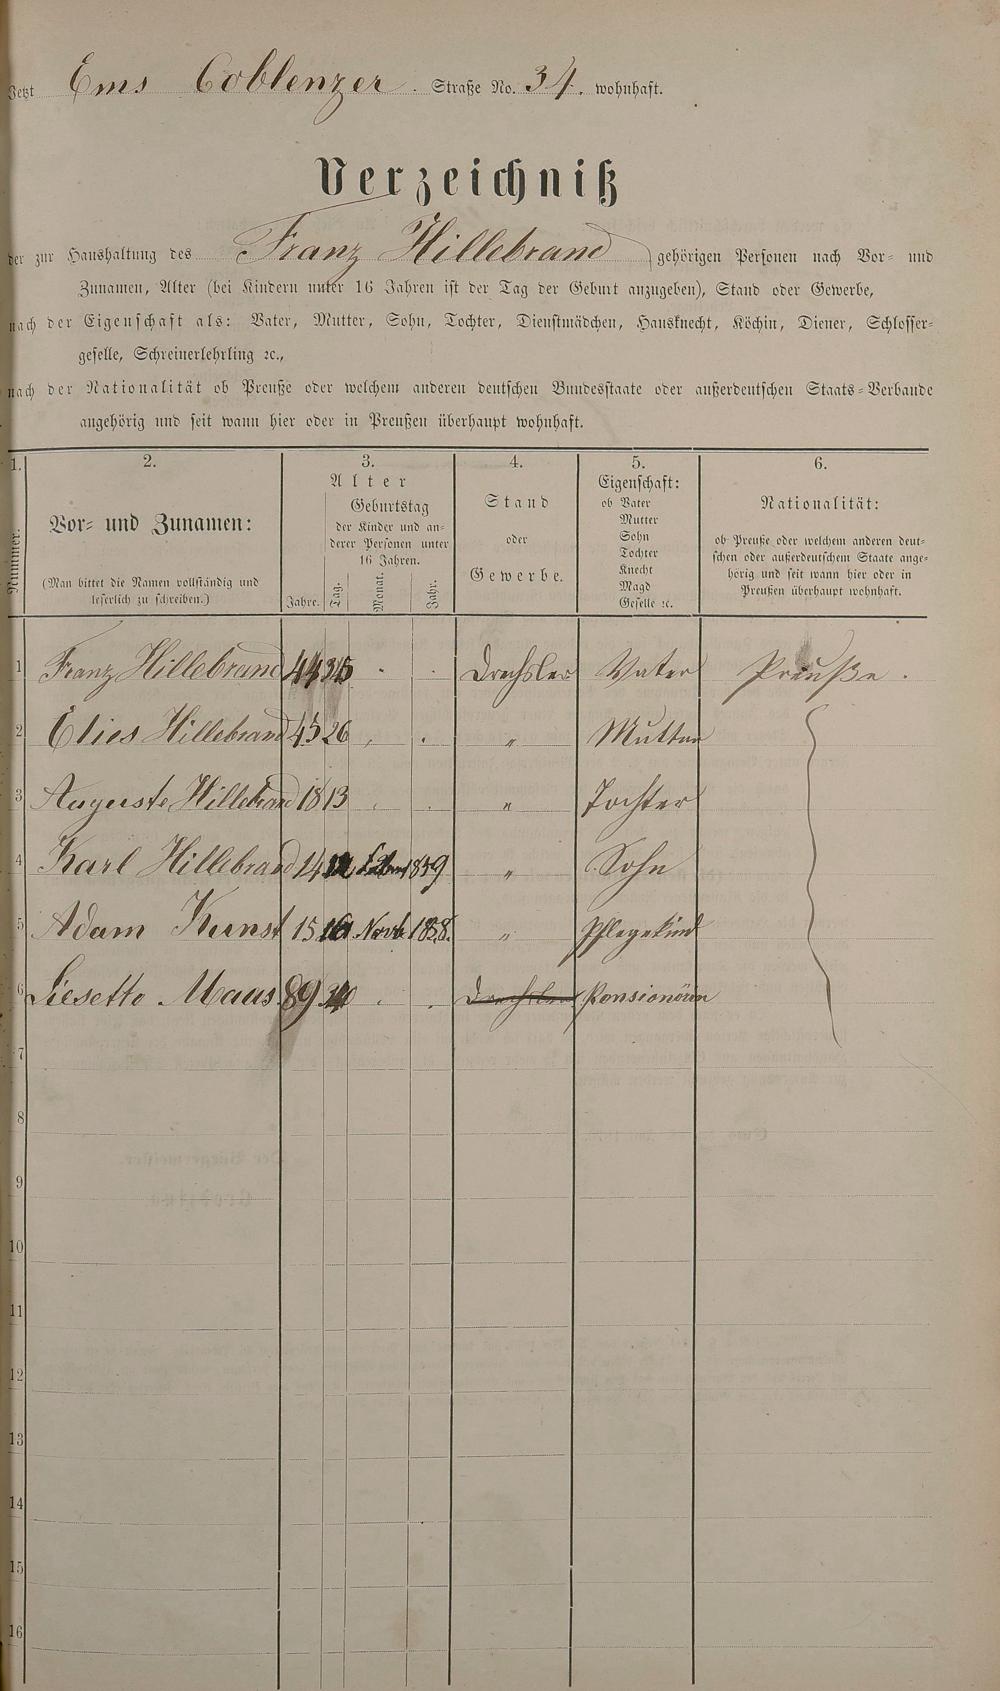 Jetzt Ems Coblenzer. Straße No. 34. wohnhaft.
Verzeichniß
der zur Haushaltung des Franz Hillebrand gehörigen Personen nach Vor- und
Zunamen, Alter (bei Kindern unter 16 Jahren ist der Tag der Geburt anzugeben), Stand oder Gewerbe,
nach der Eigenschaft als: Vater, Mutter, Sohn, Tochter, Dienstmädchen, Hausknecht, Köchin, Diener, Schlosser-
geselle, Schreinerlehrling ꝛc.,
nach der Nationalität ob Preuße oder welchem anderen deutschen Bundesstaate oder außerdeutschen Staats-Verbande
angehörig und seit wann hier oder in Preußen überhaupt wohnhaft.
1. 2. 3. 4. 5. 6.
Nummer.
Vor- und Zunamen:
(Man bittet die Namen vollständig und
leserlich zu schreiben.)
Alter
Jahre.
Geburtstag
der Kinder und an-
derer Personen unter
16 Jahren.
Tag. Monat. Jahr.
Stand
oder
Gewerbe.
Eigenschaft:
ob Vater
Mutter
Sohn
Tochter
Knecht
Magd
Geselle ꝛc.
Nationalität:
ob Preuße oder welchem anderen deut-
schen oder außerdeutschem Staate ange-
hörig und seit wann hier oder in
Preußen überhaupt wohnhaft.
1 Franz Hillebrand 44 Drechsler Vater Preuße.
2 Elies Hillebrand 45 26 " Mutter
3 Auguste Hillebrand 18 13 " Tochter
4 Karl Hillebrand 14 1859 " Sohn
5 Adam Kunst 15 16 Novb 1858. " Pflegekind
6 Liesetto Maus 89 Drechsler Pensionärin
7
8
9
10
11
12
13
14
15
16